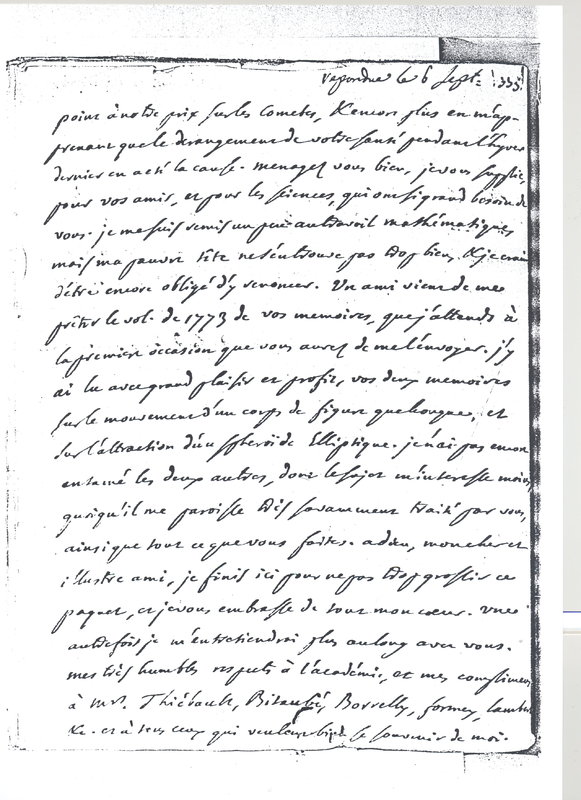 repondue le 6 sept. 1775
point à notre prix sur les cometes, & encore plus en m'ap-
prenant que le derangement de votre santé pendant l'hyver
dernier en a été la cause. menagez vous bien, je vous supplie,
pour vos amis, et pour les sciences, qui ont si grand besoin de
vous. je me suis remis un peu au travail mathématique,
mais ma pauvre tête ne s'en trouve pas trop bien, & je crains
d'être encore obligé d'y renoncer. Un ami vient de me
prêter le vol. de 1773 de vos memoires, que j'attends à
la premiere occasion que vous aurez de me l'envoyer. j'y
ai lu avec grand plaisir et profit, vos deux memoires
sur le mouvement d'un corps de figure quelconque, et
sur l'attraction d'un spheroïde Elliptique. je n'ai pas encore
entamé les deux autres, dont le sujet m'interesse moins,
quoiqu'il me paroisse très savamment traité par vous,
ainsi que tout ce que vous faites. adieu, mon cher et
illustre ami, je finis ici pour ne pas trop grossir ce
paquet, et je vous embrasse de tout mon cœur. une
autre fois je m'entretiendrai plus au long avec vous.
mes très humbles respects à l'académie, et mes complimens
à mrs. Thiébault, Bitaubé, Borrelly, formey, lambert
&c. et à tous ceux qui veulent bien se souvenir de moi.